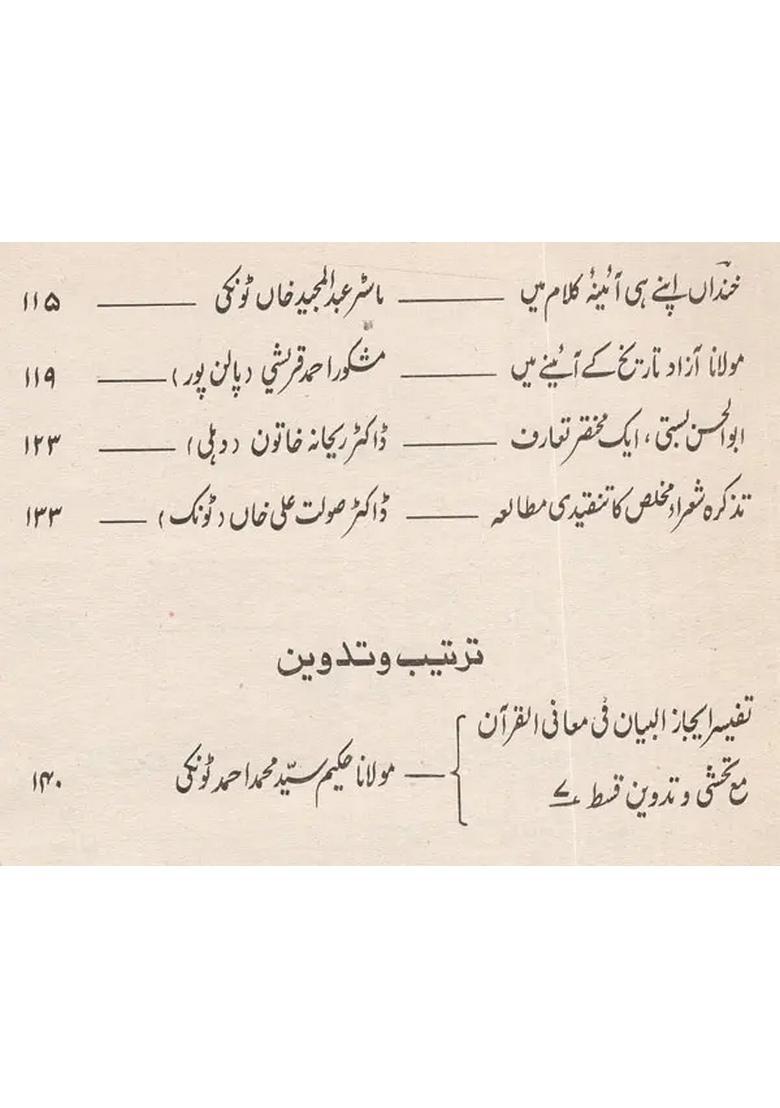 خنداںؔ اپنے ہی آئینۂ کلام میں ——— ماسٹر عبدالمجید خاں ٹونکی ——— ۱۱۵
مولانا آزاد تاریخ کے آئینے میں ——— مشکور احمد قریشی (پالن پور) ——— ۱۱۹
ابوالحسن بستی، ایک مختصر تعارف ——— ڈاکٹر ریحانہ خاتون (دہلی) ——— ۱۲۳
تذکرہ شعراء مخلص کا تنقیدی مطالعہ ——— ڈاکٹر صولت علی خاں (ٹونک) ——— ۱۳۳
ترتیب و تدوین
تفیسر ایجاز البیان فی معانی القرآن
مع تحشی و تدوین قسط ——— مولانا حکیم سیّد محمد احمد ٹونکی ۱۴۰